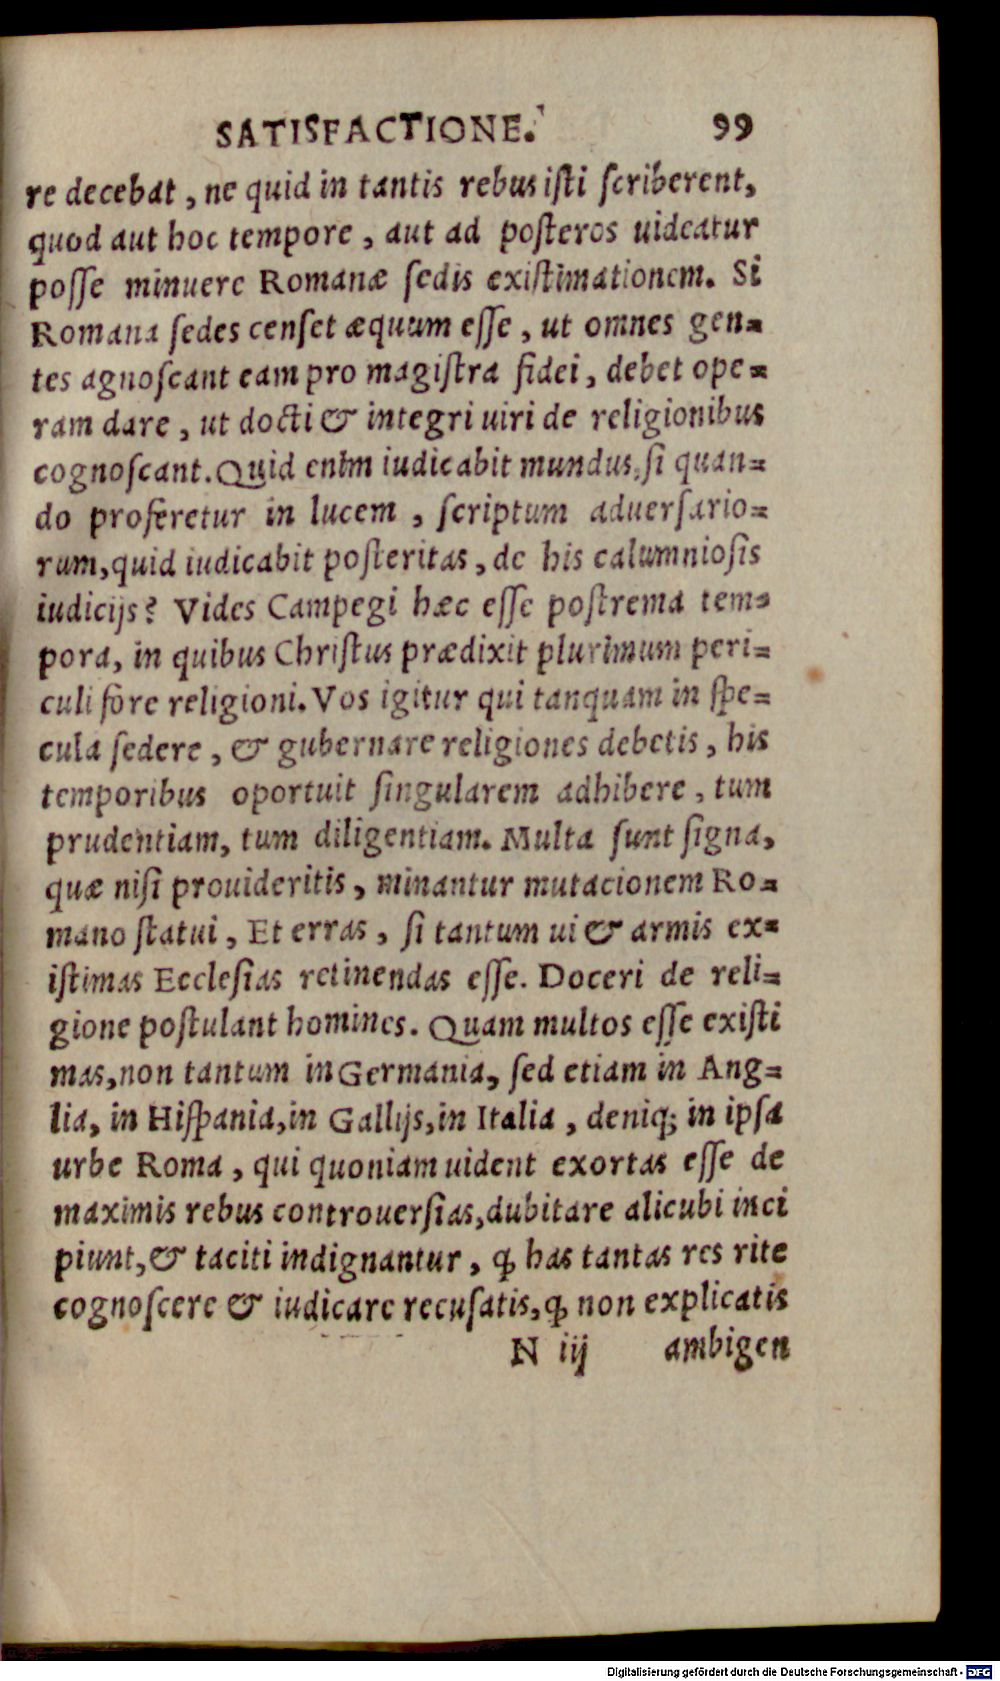 SATISFACTIONE. 99
re decebat, ne quid in tantis rebus isti scriberent,
quod aut hoc tempore, aut ad posteros uideatur
posse minuere Romanæ sedis existimationem. Si
Romana sedes censet æquum esse, ut omnes gen=
tes agnoscant eam pro magistra fidei, debet ope=
ram dare, ut docti & integri uiri de religionibus
cognoscant. Quid enim iudicabit mundus, si quan=
do proferetur in lucem, scriptum aduersario=
rum, quid iudicabit posteritas, de his calumniosis
iudicijs? Vides Campegi hæc esse postrema tem=
pora, in quibus Christus prædixit plurimum peri=
culi fore religioni. Vos igitur qui tanquam in spe=
cula sedere, & gubernare religiones debetis, his
temporibus oportuit singularem adhibere, tum
prudentiam, tum diligentiam. Multa sunt signa,
quæ nisi prouideritis, minantur mutacionem Ro=
mano statui, Et erras, si tantum ui & armis ex=
istimas Ecclesias retinendas esse. Doceri de reli=
gione postulant homines. Quam multos esse existi
mas, non tantum in Germania, sed etiam in Ang=
lia, in Hispania, in Gallijs, in Italia, deniq; in ipsa
urbe Roma, qui quoniam uident exortas esse de
maximis rebus controuersias, dubitare alicubi inci
piunt, & taciti indignantur, ꝙ has tantas res rite
cognoscere & iudicare recusatis, ꝙ non explicatis
N iij ambigen
Digitalisierung gefördert durch die Deutsche Forschungsgemeinschaft - DFG